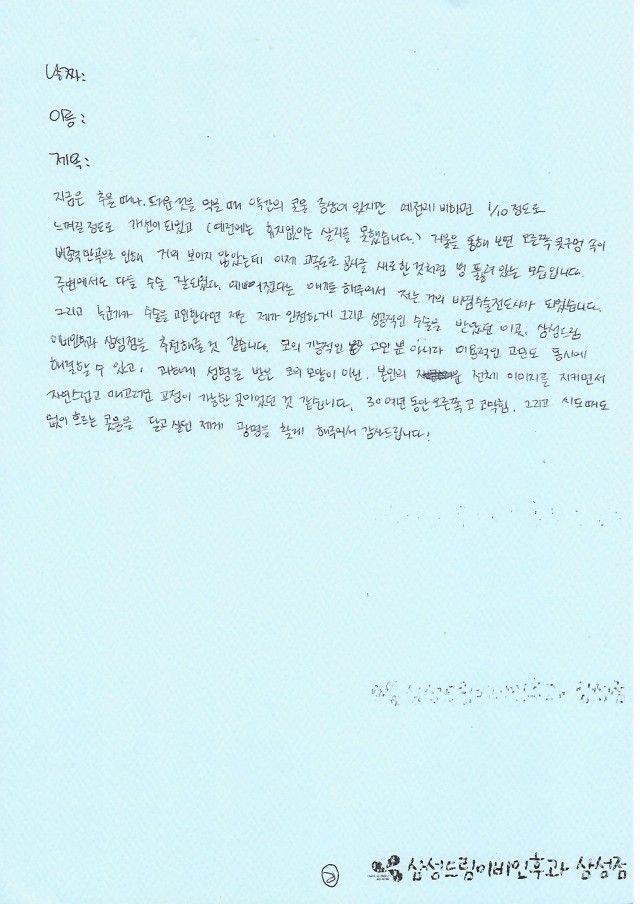 날짜:
이름:
제목:
지금은 추울 때나, 뜨거운 것을 먹을 때 약간의 콧물 증상이 있지만 예전에 비하면 1/10 정도로
느껴질 정도로 개선이 되었고 (예전에는 휴지없이는 살지를 못했습니다.) 거울을 통해 보면 오른쪽 콧구멍 속이
비중격만곡으로 인해 거의 보이지 않았는데 이제 고속도로 공사를 새로 한 것처럼 뻥 뚫려 있는 모습입니다.
주변에서도 다들 수술 잘되었다. 예뻐졌다는 얘기들 해주어서 저는 거의 비염수술전도사가 되었습니다.
그리고 누군가가 수술을 고민한다면 저는 제가 안전하게 그리고 성공적인 수술을 받았던 이곳, 삼성드림
이비인후과 삼성점을 추천해줄 것 같습니다. 코의 기능적인 고민 뿐 아니라 미용적인 고민도 동시에
해결할 수 있고, 과하게 성형을 받은 코의 모양이 아닌, 본인의 전체 이미지를 지키면서
자연스럽고 매끄러운 교정이 가능한 곳이었던 것 같습니다. 30여년 동안 오른쪽 코 코막힘, 그리고 시도때도
없이 흐르는 콧물을 달고 살던 제게 광명을 찾게 해주어서 감사드립니다!
삼성드림이비인후과 삼성점
② 삼성드림이비인후과 삼성점